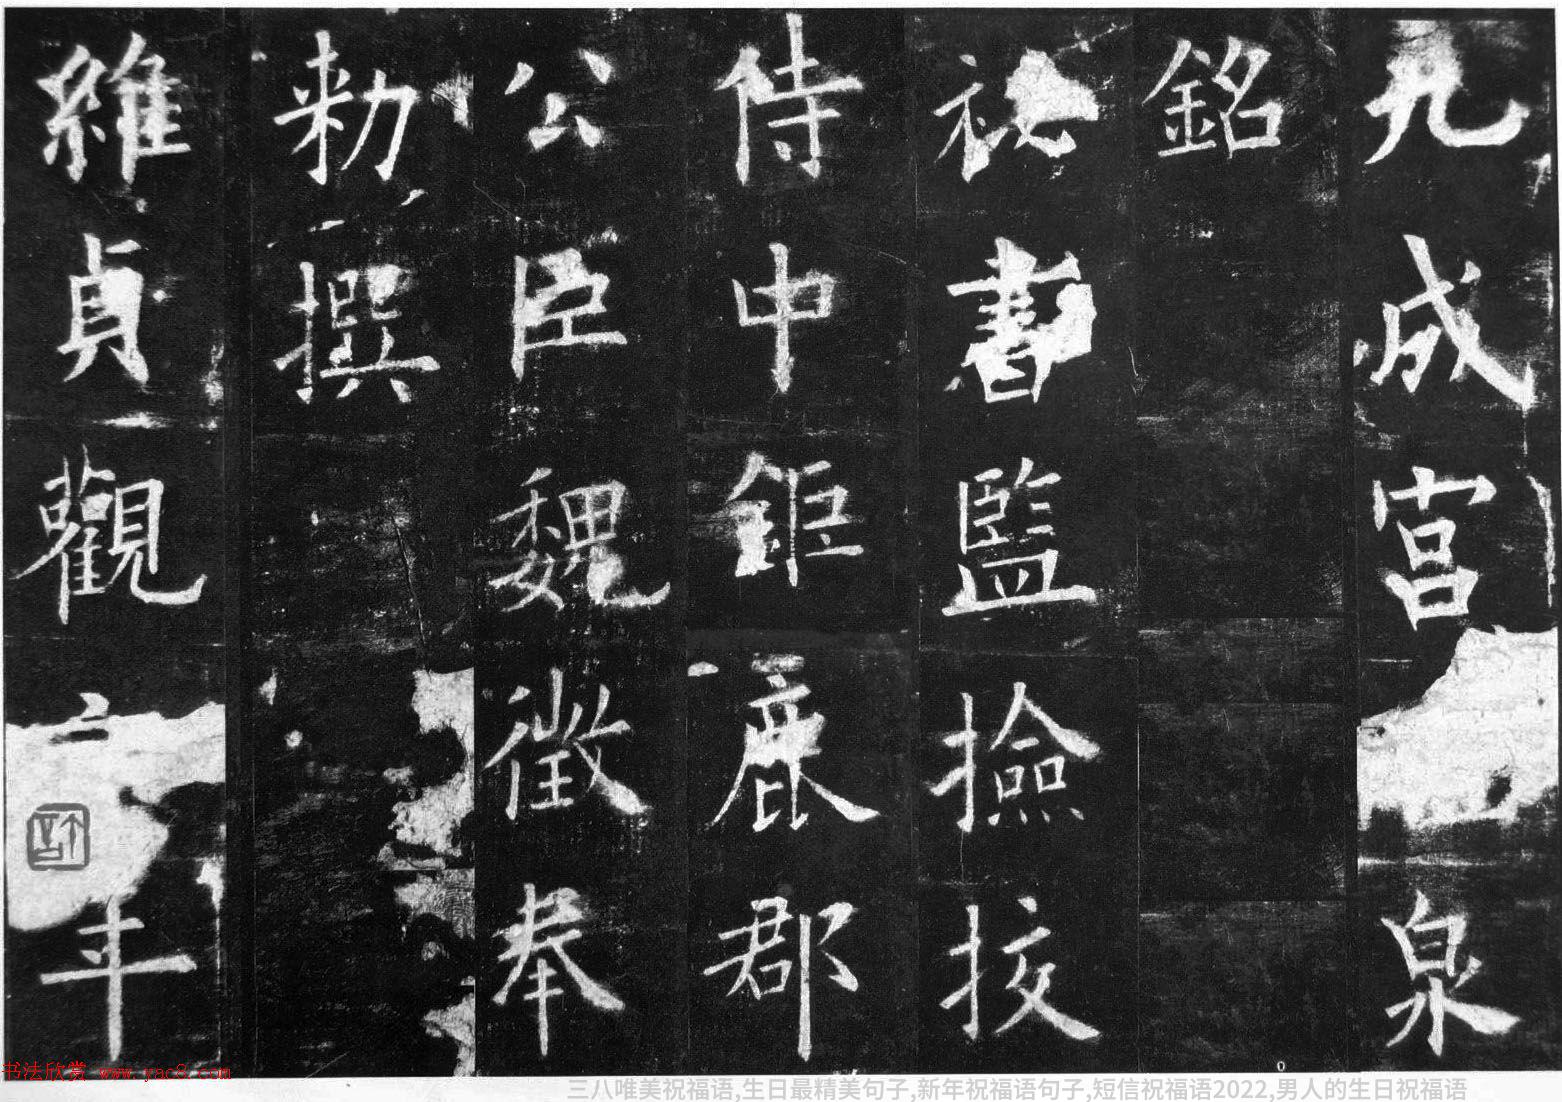 九成宮泉
銘
祕書監撿挍
侍中鉅鹿郡
公臣魏徵奉
勑撰
維貞觀年
书法欣赏 www.yac8.com
三八唯美祝福语,生日最精美句子,新年祝福语句子,短信祝福语2022,男人的生日祝福语